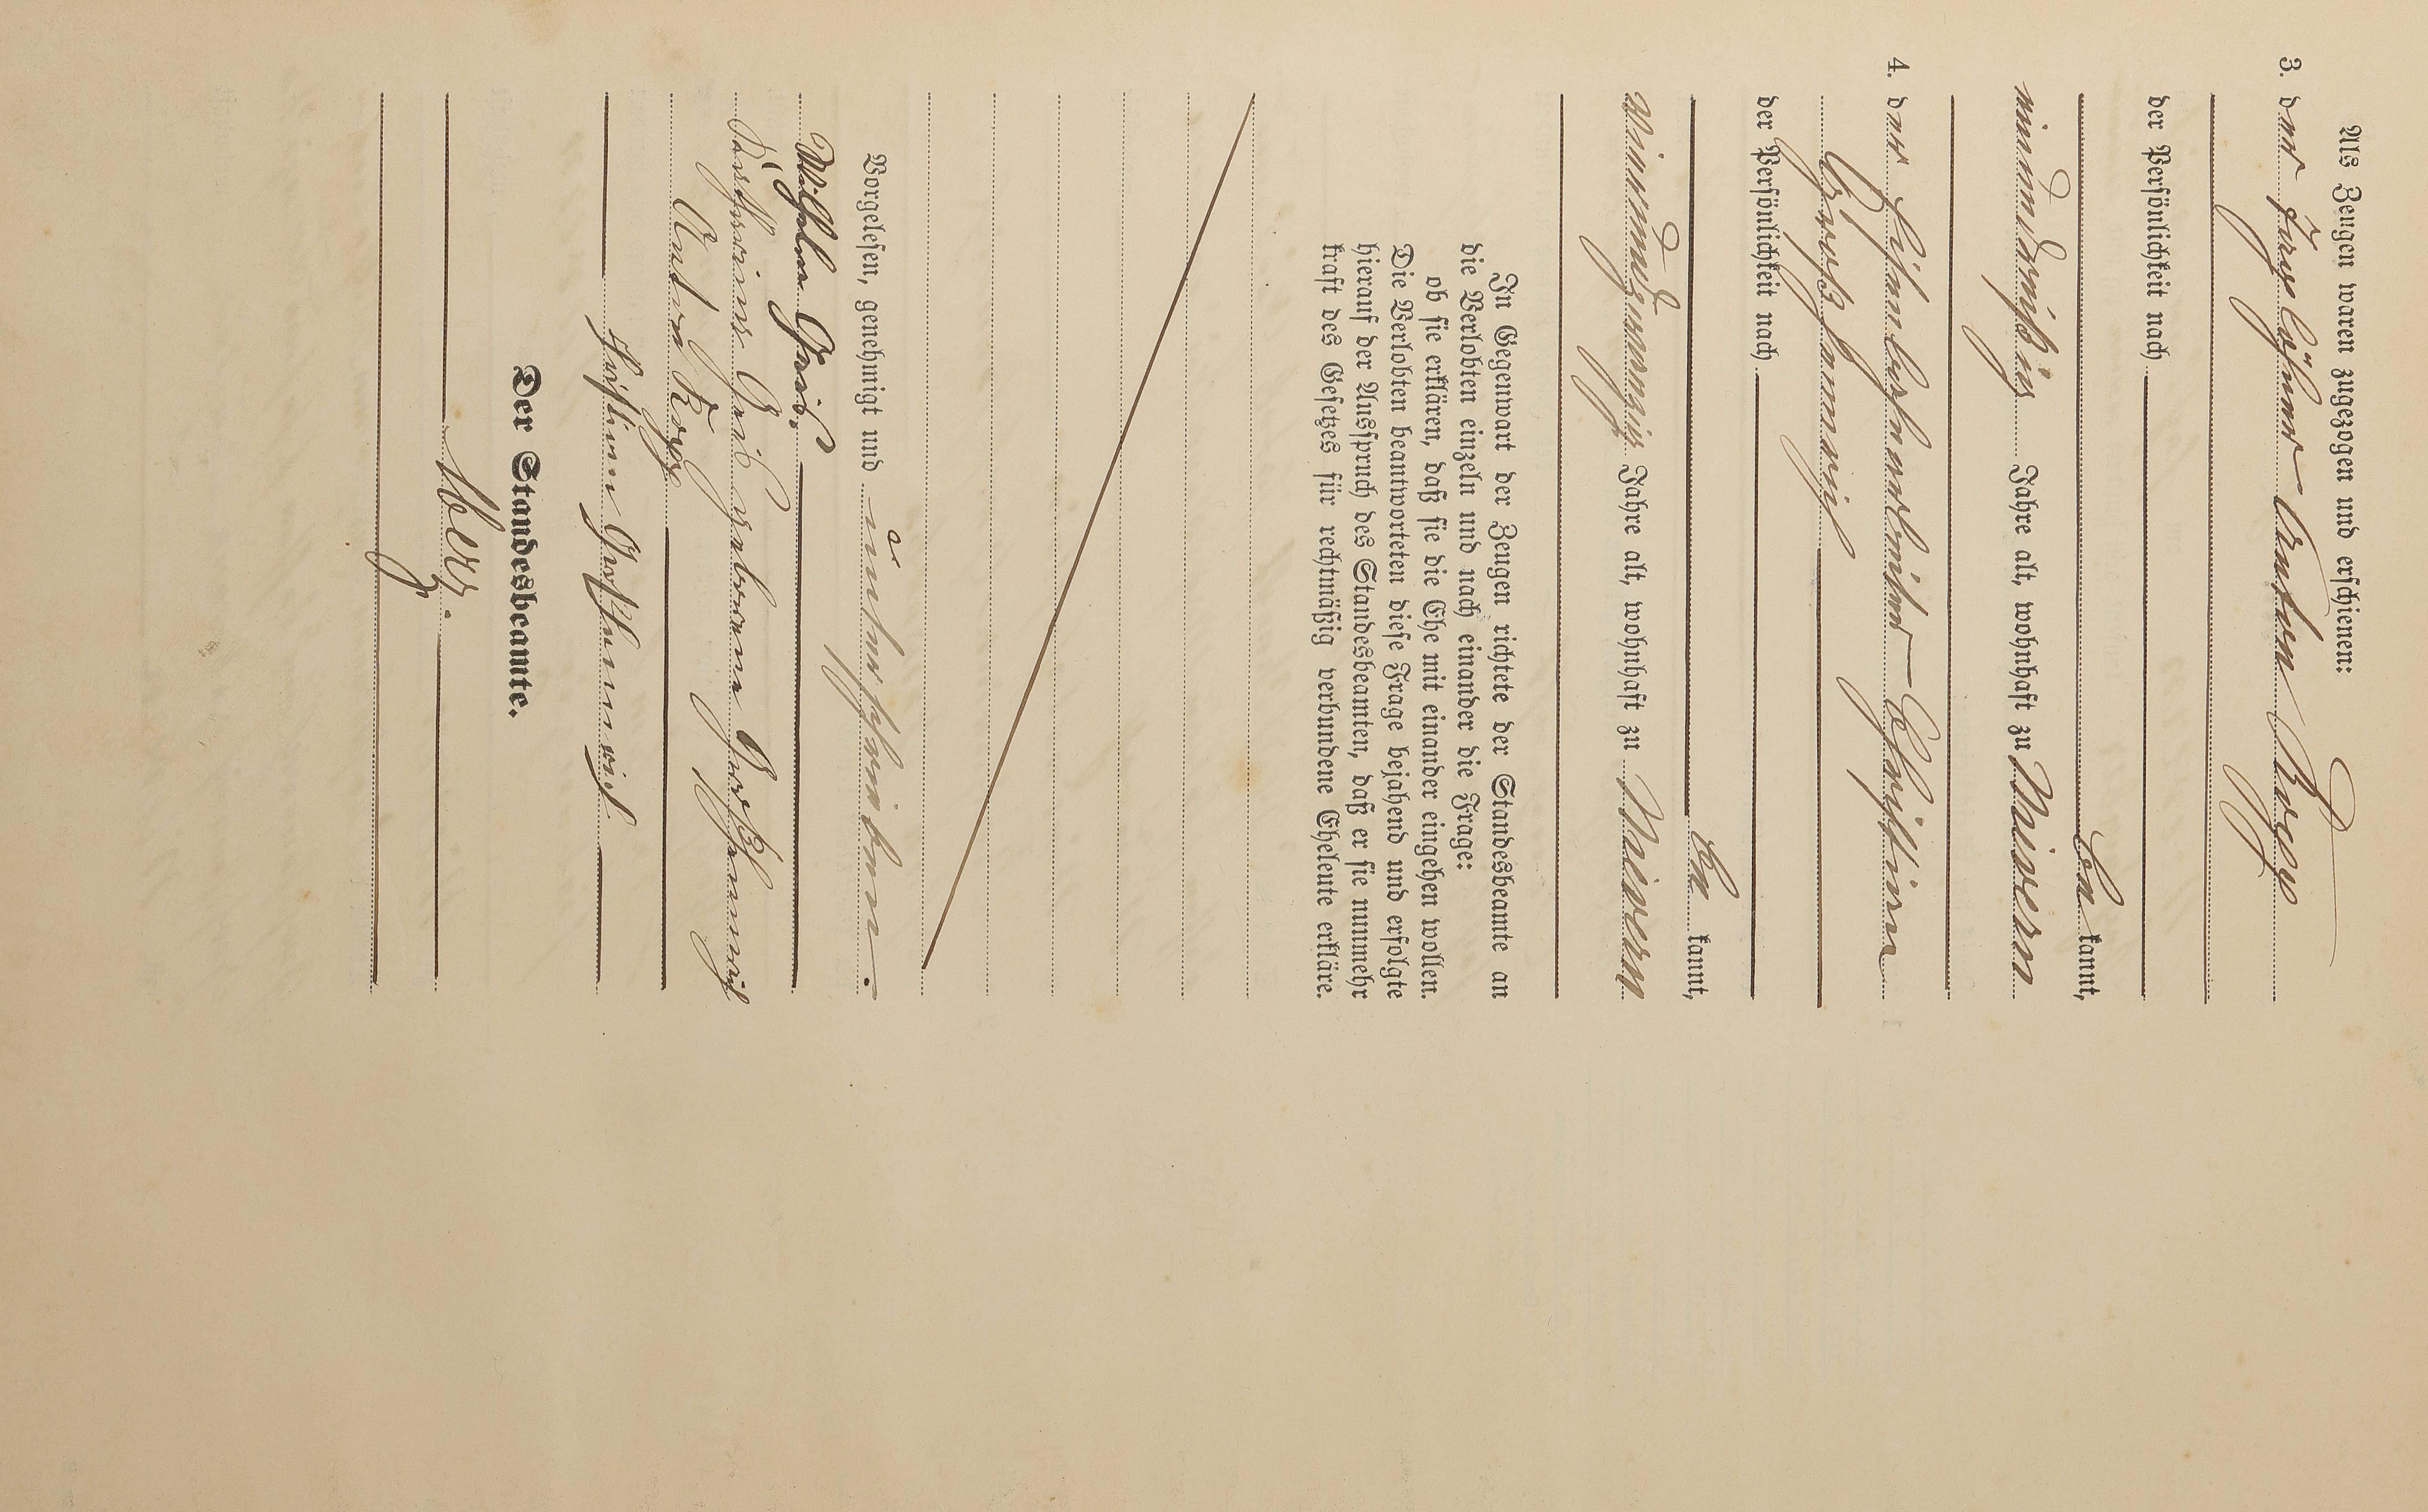 Als Zeugen waren zugezogen und erschienen:
3. der Tagelöhner Anton Kopp
der Persönlichkeit nach
be kannt,
einunddreißig Jahre alt, wohnhaft zu Miesern
4. der Eisenbahnarbeiter Christian
Großhennrich
der Persönlichkeit nach
be kannt,
einundzwanzig Jahre alt, wohnhaft zu Miesern
In Gegenwart der Zeugen richtete der Standesbeamte an
die Verlobten einzeln und nach einander die Frage:
ob sie erklären, daß sie die Ehe mit einander eingehen wollen.
Die Verlobten beantworteten diese Frage bejahend und erfolgte
hierauf der Ausspruch des Standesbeamten, daß er sie nunmehr
kraft des Gesetzes für rechtmäßig verbundene Eheleute erkläre.
Vorgelesen, genehmigt und unterschrieben.
Wilhelm Greib
Greib geborene Großhennrich
Anton
Großhennrich
Der Standesbeamte.